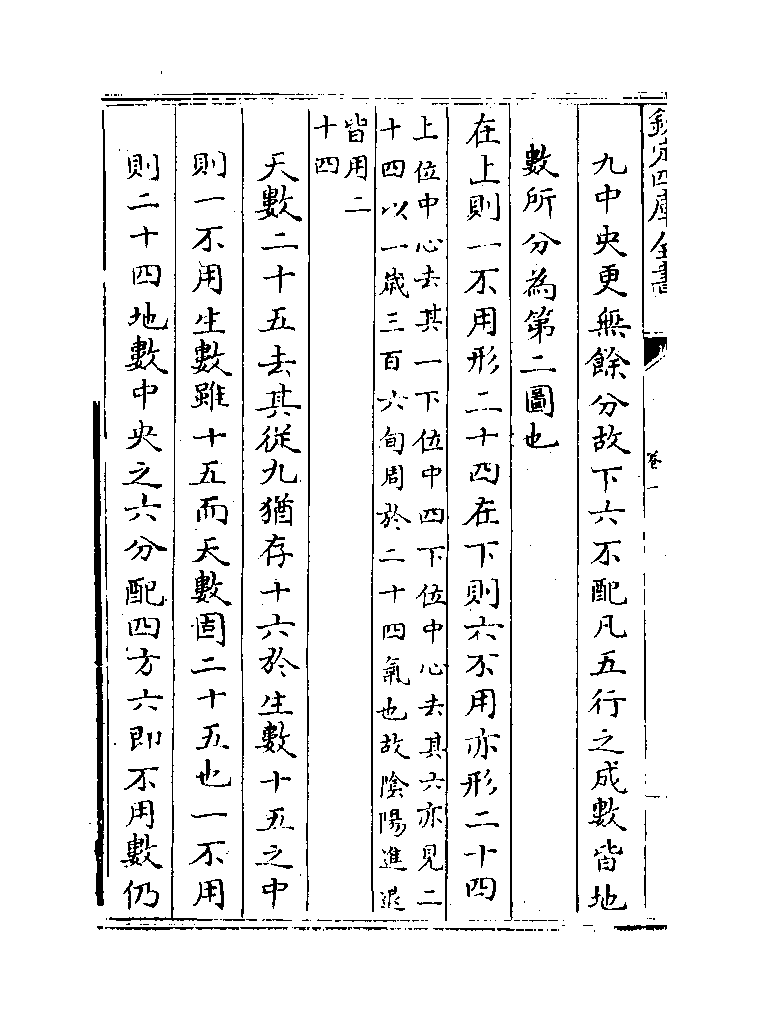 欽定四庫全書
卷一
九中央更無餘分故下六不配凡五行之成數皆地
數所分為第二圖也
在上則一不用形二十四在下則六不用亦形二十四
上位中心去其一下位中四下位中心去其六亦見二
十四以一歳三百六旬周於二十四氣也故陰陽進退
皆用二
十四
天數二十五去其從九猶存十六於生數十五之中
則一不用生數雖十五而天數固二十五也一不用
則二十四地數中央之六分配四方六即不用數仍